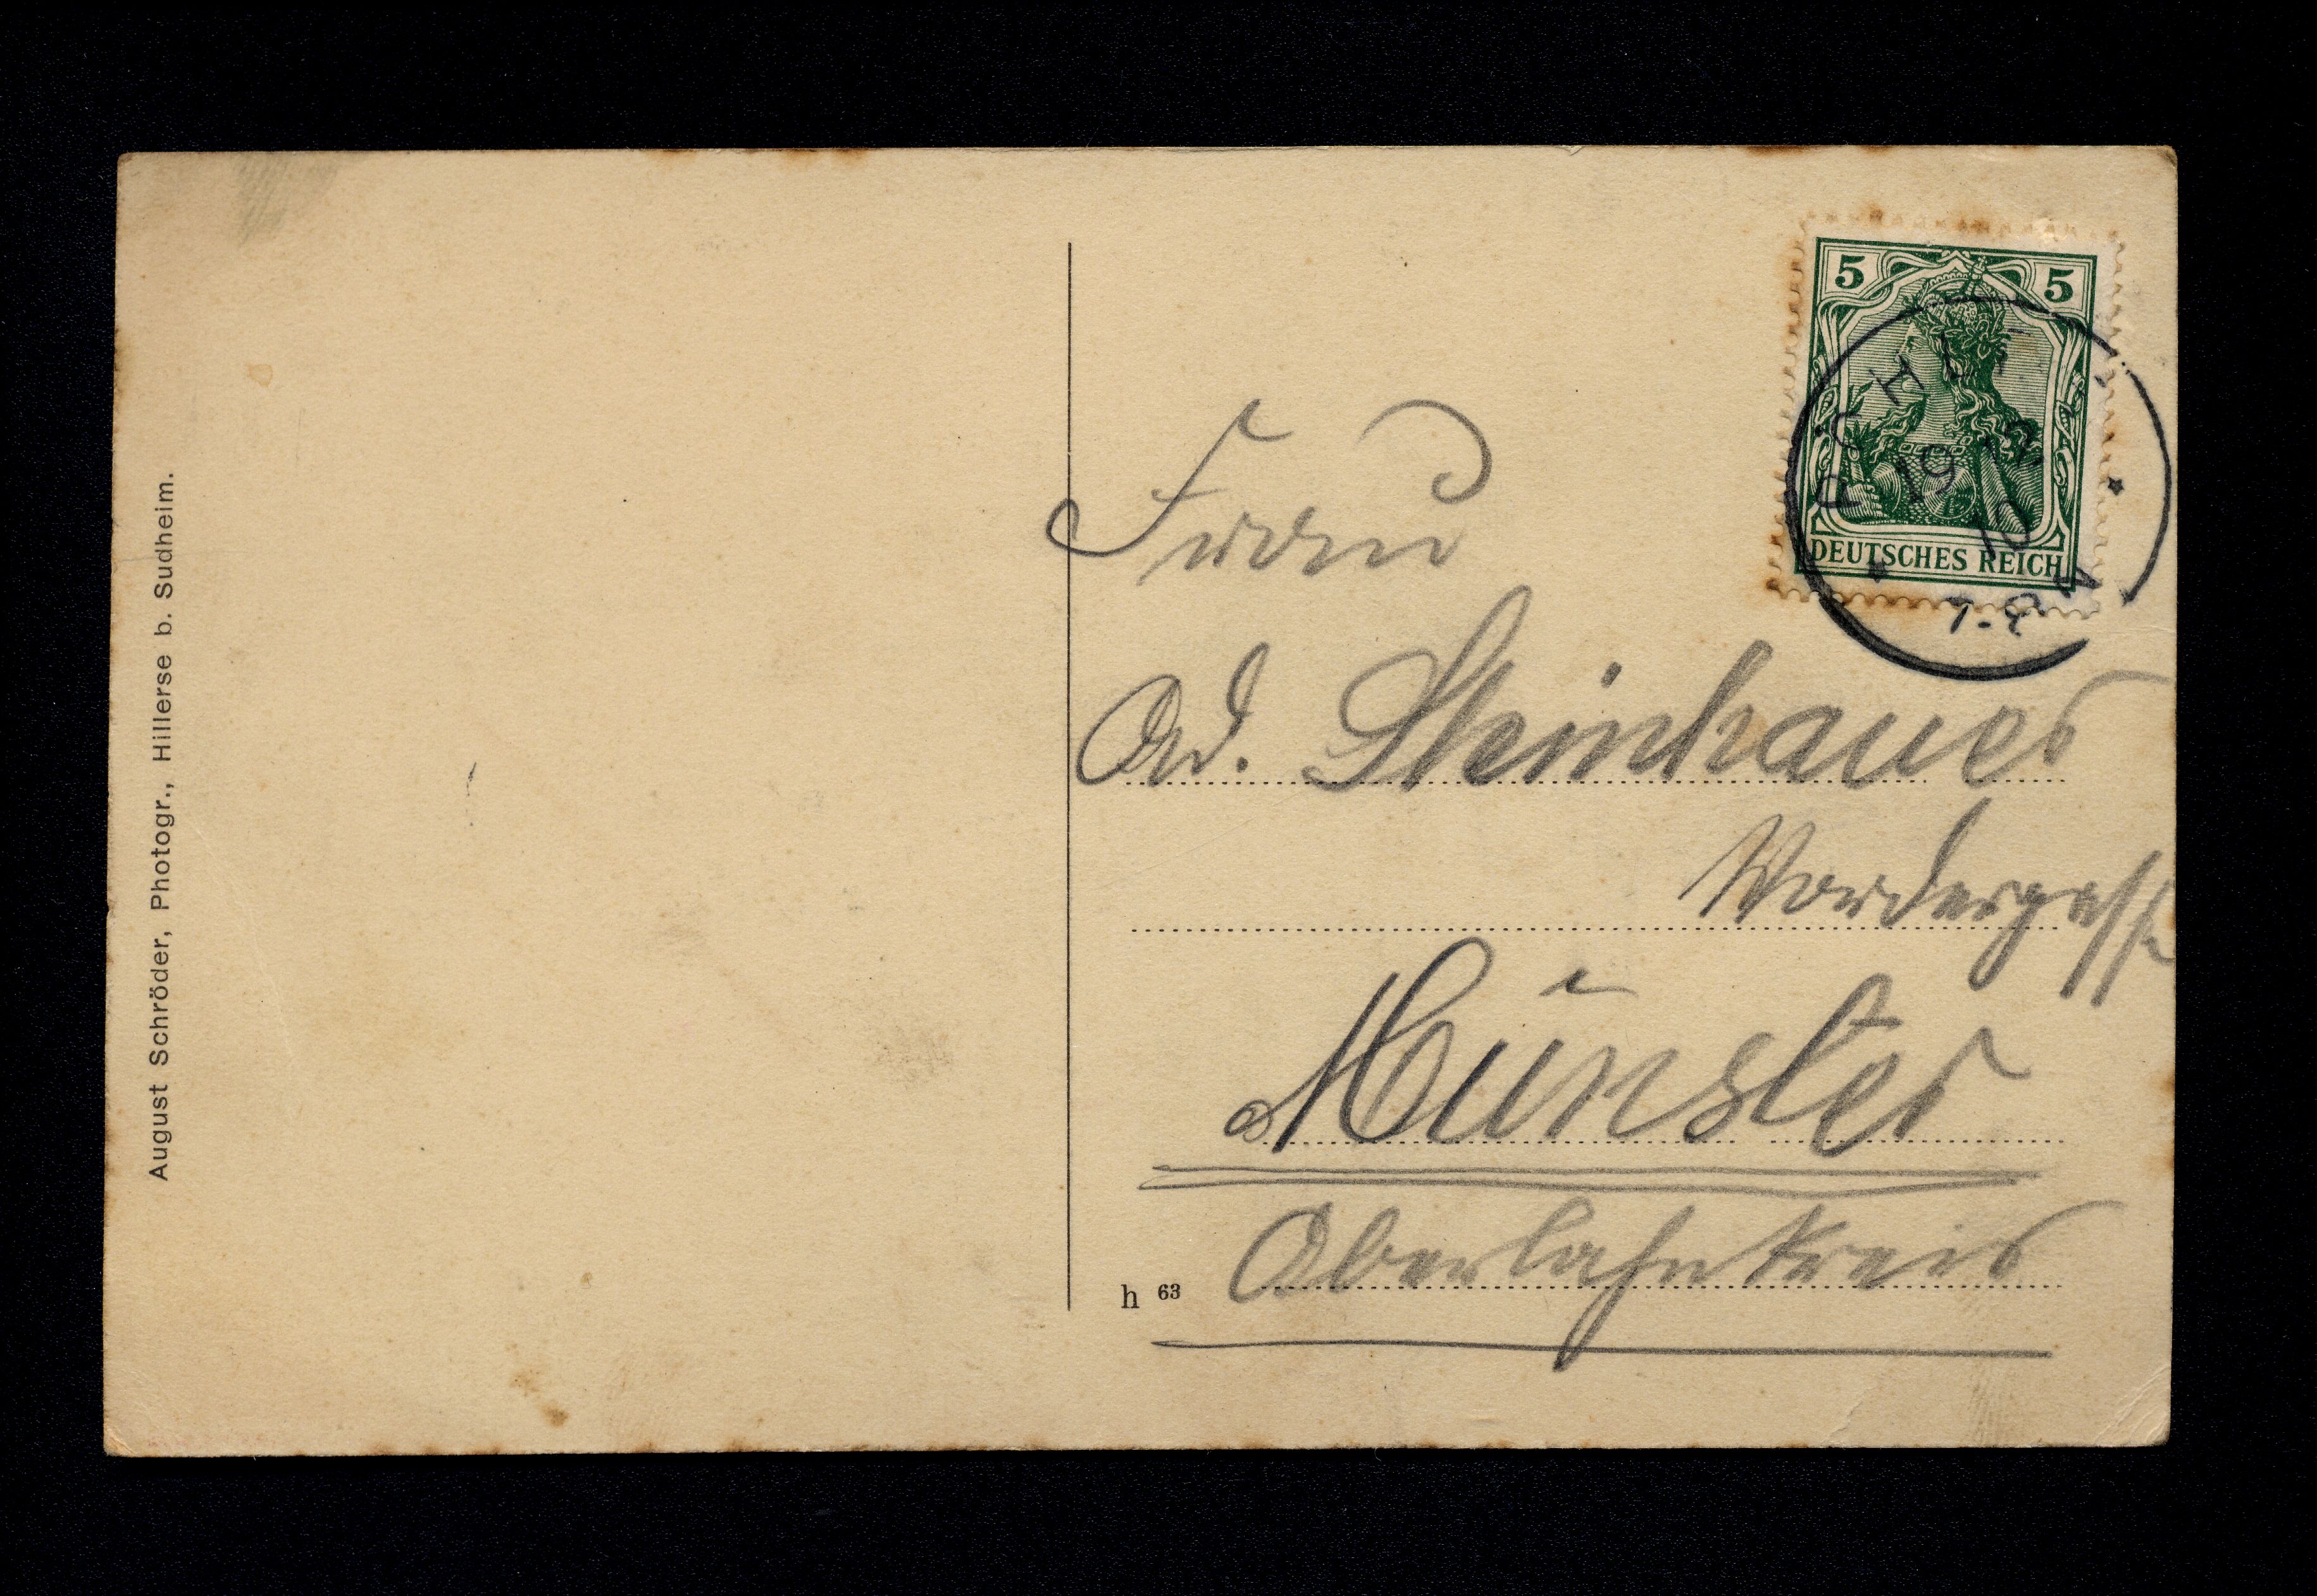 August Schröder, Photogr., Hillerse b. Sudheim.
5 5
DEUTSCHES REICH
Frau
Ad. Steinhauer
Vordergasse
Münster
Oberlahnkreis
h 63